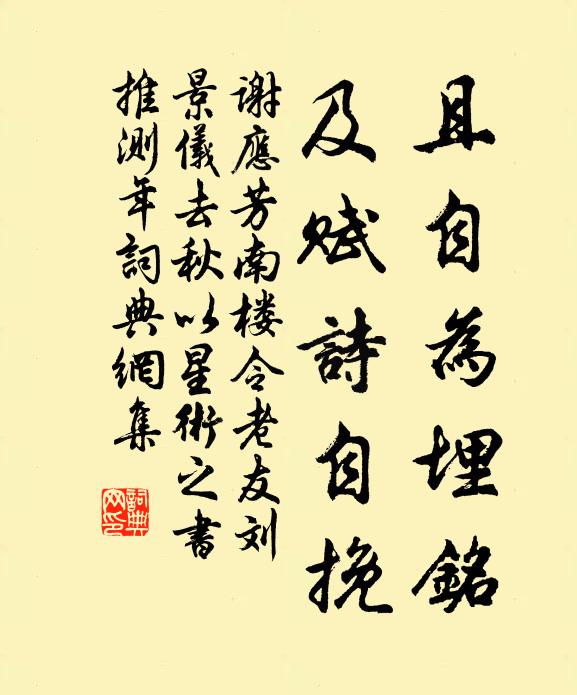 且自為埋銘
及賦詩自挽
謝應芳南楼令老友刘
景儀去秋以星術之書
推测年詞典網集
詞典
网印